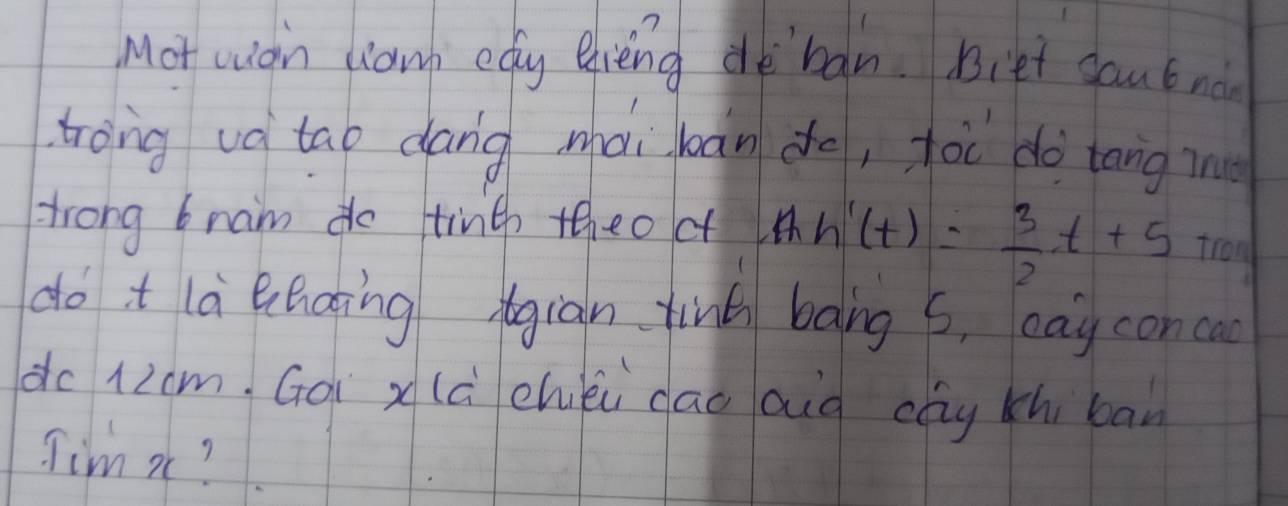 Một vườn ươm cây kiểng để bán. Biết sau 6 năm
trồng và tạo dáng mới bán đc, tốc độ tăng trưở
trong 6 năm đc tính theo ct h'(t) = 3/2 t + 5 tron
đó t là khoảng tgian tính bằng S, cây con cao
đc 12cm. Gọi x là chiều cao của cây khi bán
Tìm x?